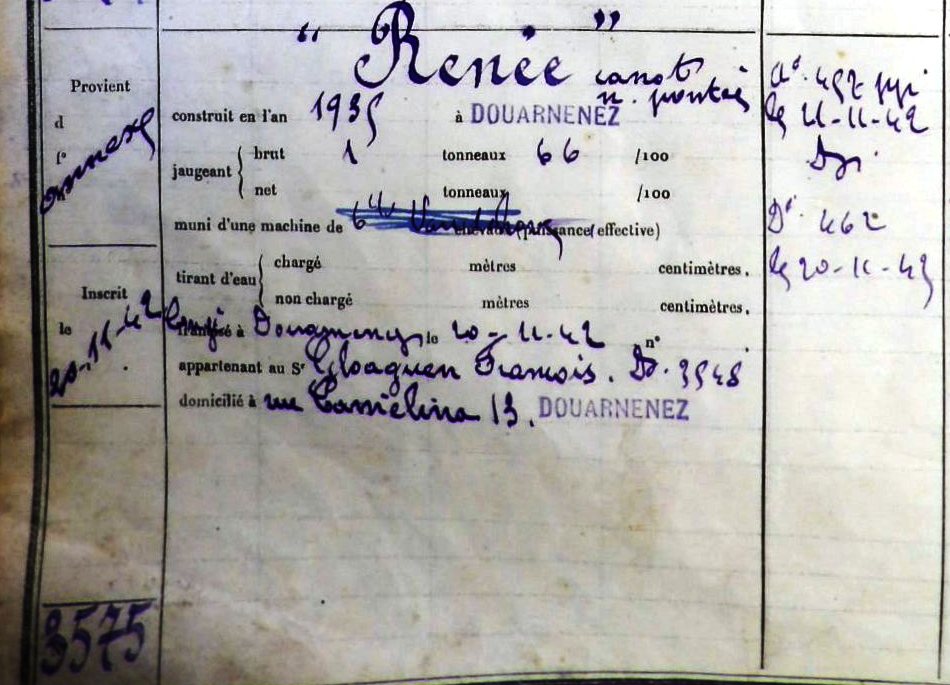 Provient
d
f°
annexe
Inscrit
le
20-11-42
3575
" Renée " canot
n. ponté
construit en l'an 1935 à DOUARNENEZ
jaugeant { brut 1 tonneaux 66 /100
net tonneaux /100
muni d'une machine de 6 chevaux (puissance effective)
tirant d'eau { chargé mètres centimètres.
non chargé mètres centimètres.
francisé à Douarnenez le 20-11-42 n°
appartenant au Sr Gloaguen François. Dz. 3548
domicilié à rue Camélina 13. DOUARNENEZ
457
le 11-11-42
Dz
Dt 462
le 20-11-42